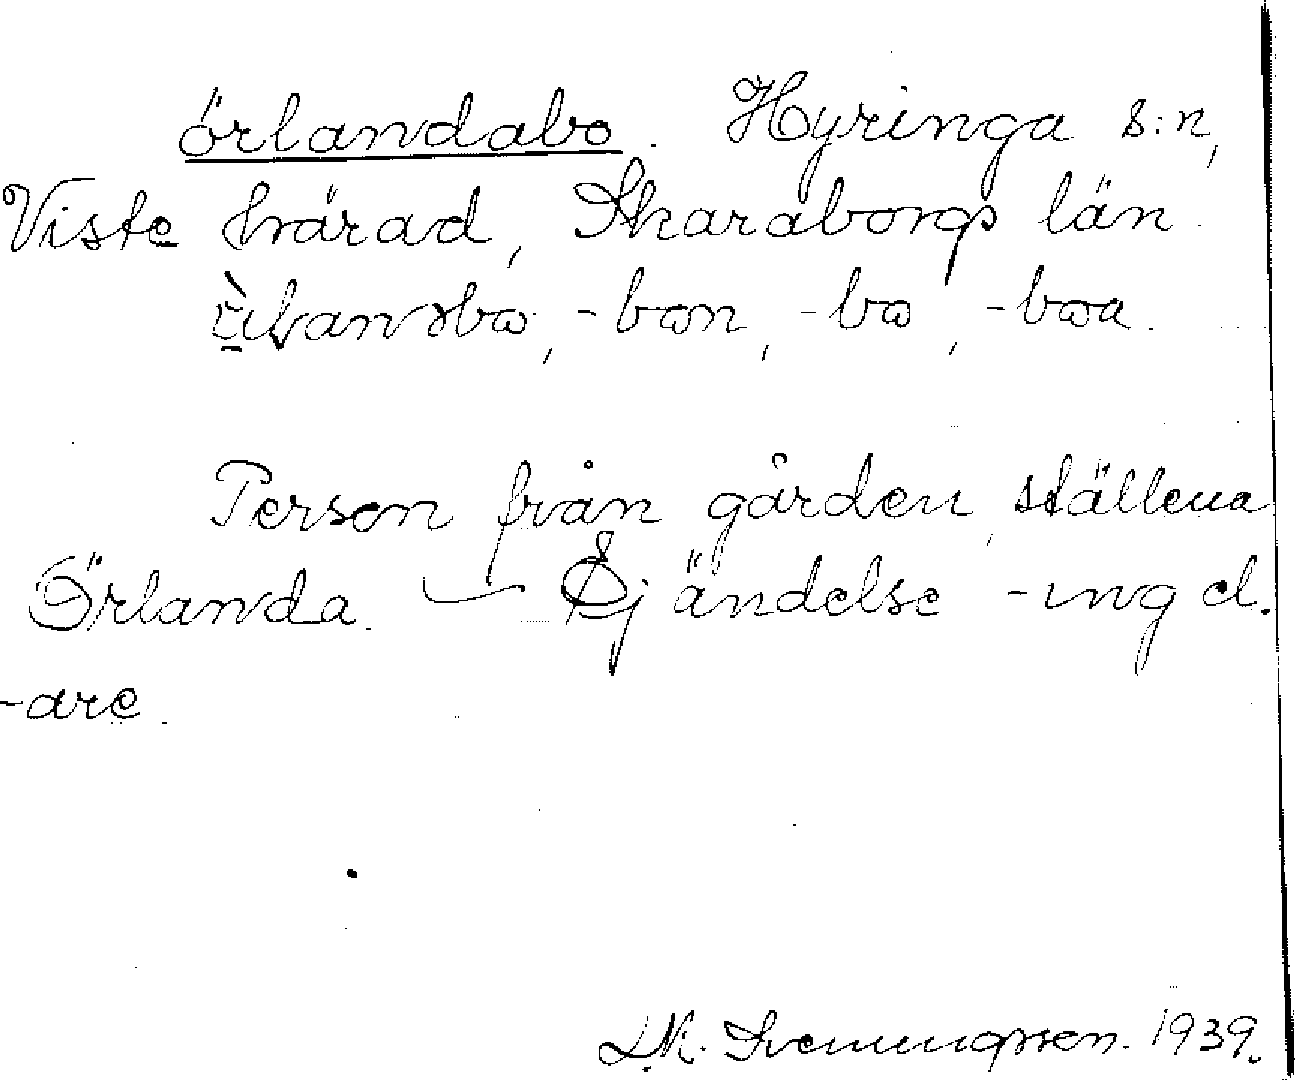 örlandabo. Hyringa s:n,
Viste härad, Skaraborgs län.
-bon, -bo, -boa.
Person från gården, ställena
Örlanda. — Ej ändelse -ing el.
-are.
D.N. Svenungsson. 1939.